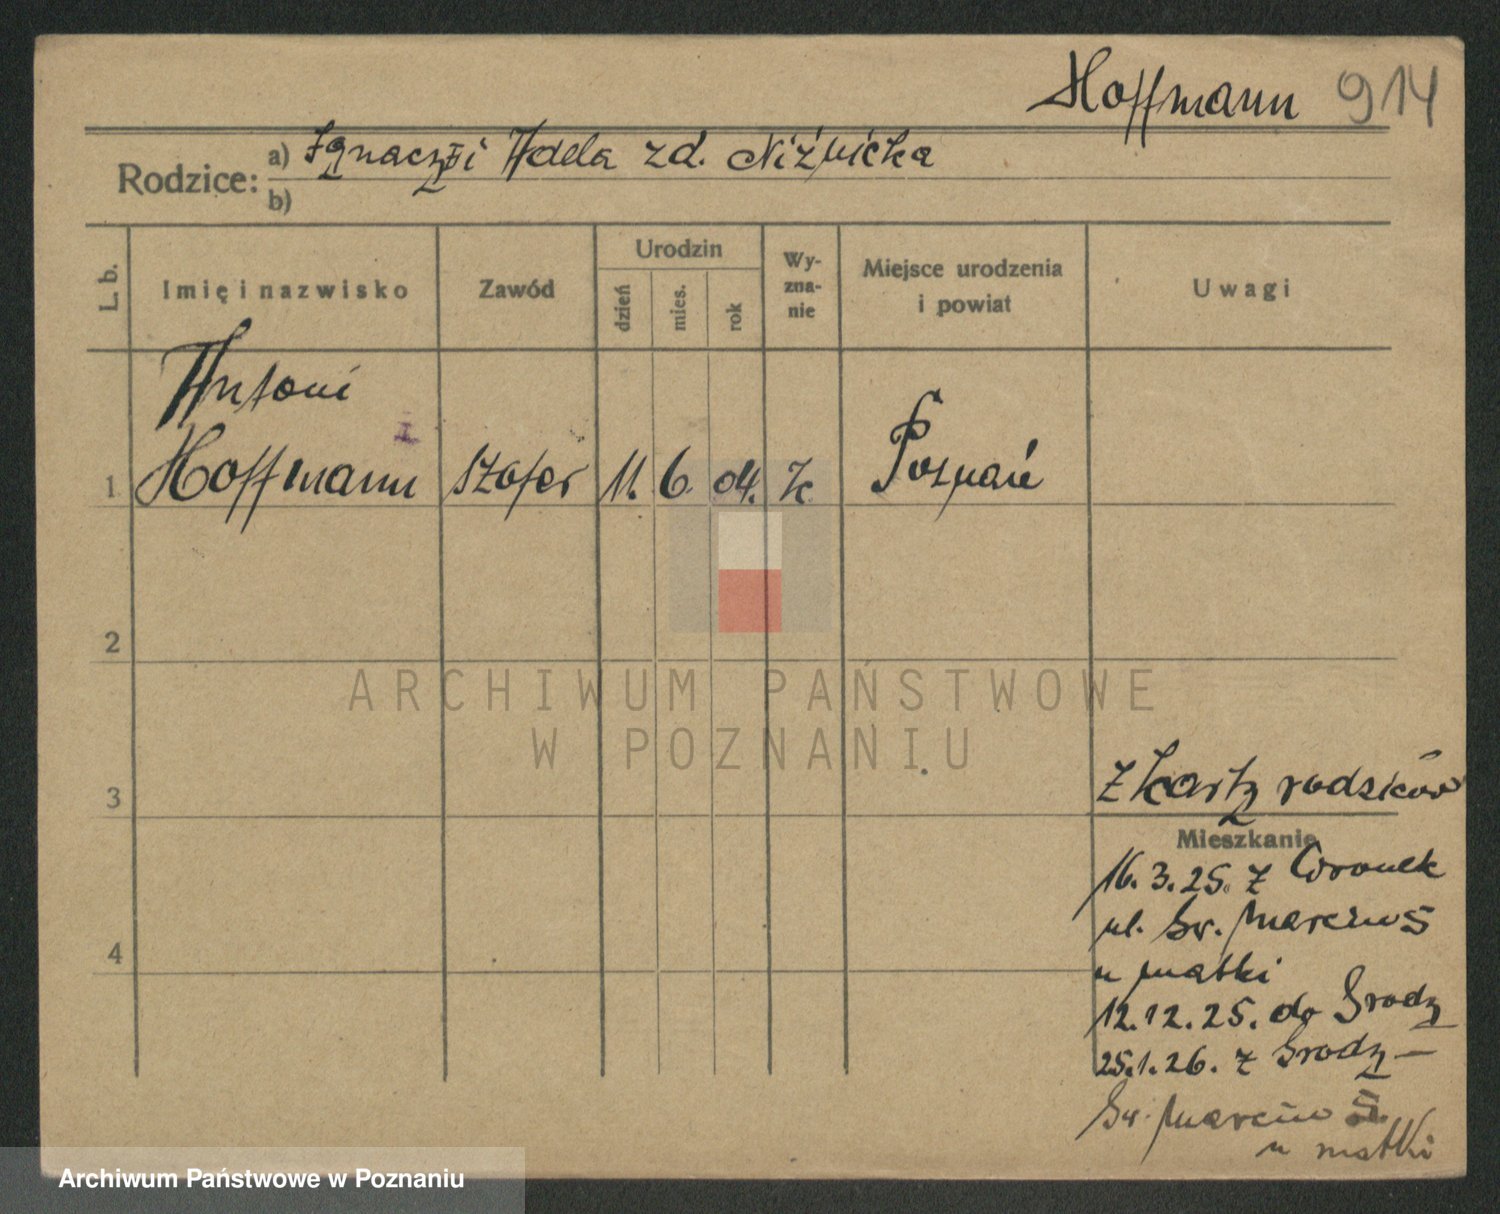 Hoffmann 914
Rodzice: a) Ignacy i Adela zd. Niżnicka
b)
L. b.
Imię i nazwisko
Zawód
Urodzin
dzień
mies.
rok
Wy-
zna-
nie
Miejsce urodzenia
i powiat
Uwagi
Antoni
1 Hoffmann szofer 11. 6. 04. k. Poznań
2
ARCHIWUM PAŃSTWOWE
W POZNANIU
3
z karty rodziców
Mieszkanie
16. 3. 25. z Wronek
ul. Św. Marcin 5
u matki
4
12.12.25. do Środy
25.1.26. z Środy –
Św. Marcin 5.
u matki
Archiwum Państwowe w Poznaniu